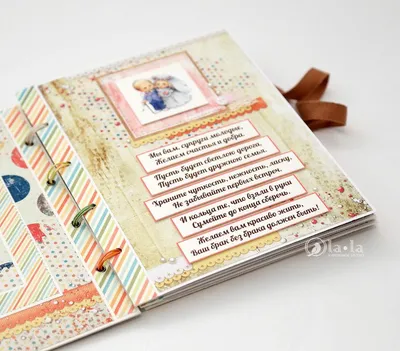 Мы вам, супруги молодые,
Желаем счастья и добра.
Пусть будет светлою дорога,
Пусть будет дружною семья.
Храните чуткость, нежность, ласку,
Не забывайте первых встреч.
И кольца те, что взяли в руки
Сумейте до конца сберечь.
Желаем вам красиво жить,
Ваш брак без брака должен быть!
la•la